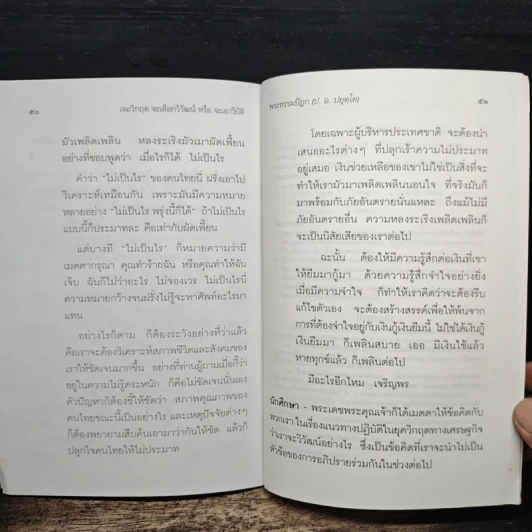 ๕๐
เจอวิกฤต จะเลือกวิวัฒน์ หรือ จะเอาวิบัติ
มัวเพลิดเพลิน หลงระเริงมัวเมาผัดเพี้ยน
อย่างที่ชอบพูดว่า เมื่อไรก็ได้ ไม่เป็นไร
คำว่า “ไม่เป็นไร” ของคนไทยนี่ ฝรั่งเอาไป
วิเคราะห์เหมือนกัน เพราะมันมีความหมาย
หลายอย่าง “ไม่เป็นไร พรุ่งนี้ก็ได้” ถ้าไม่เป็นไร
แบบนี้ก็ประมาทละ คือเท่ากับผัดเพี้ยน
แต่บางที “ไม่เป็นไร” ก็หมายความว่ามี
เมตตากรุณา คุณทำร้ายฉัน หรือคุณทำให้ฉัน
เจ็บ ฉันก็ไม่ว่าอะไร ไม่จองเวร ไม่เป็นไรนี่
ความหมายกว้างจนฝรั่งไม่รู้จะหาศัพท์อะไรมา
แทน
อย่างไรก็ตาม ก็ต้องระวังอย่างที่ว่าแล้ว
คือเราจะต้องวิเคราะห์สภาพชีวิตและสังคมของ
เราให้ชัดเจนมากขึ้น อย่างที่ท่านผู้ถามเมื่อกี้ว่า
อยู่ในความไม่รู้ตระหนัก ก็คือไม่ชัดเจนนั่นเอง
ตัวปัญหาก็ต้องชี้ให้ชัดว่า สภาพคุณภาพของ
คนไทยขณะนี้เป็นอย่างไร และเหตุปัจจัยต่างๆ
ก็ต้องพยายามสืบค้นเอามาว่ากันให้ชัด แล้วก็
ปลุกใจคนไทยให้ไม่ประมาท
พระธรรมปิฎก (ป. อ. ปยุตฺโต)
๕๑
โดยเฉพาะผู้บริหารประเทศชาติ จะต้องนำ
เสนออะไรต่างๆ ที่ปลุกเร้าความไม่ประมาท
อยู่เสมอ เงินช่วยเหลือของเขาไม่ใช่เป็นสิ่งที่จะ
ทำให้เรามัวมาเพลิดเพลินนอนใจ ที่จริงมันก็
มาพร้อมกับภัยอันตรายนั่นแหละ ถึงแม้ไม่มี
ภัยอันตรายอื่น ความหลงระเริงเพลิดเพลินก็
จะเป็นนิสัยเสียของเราต่อไป
ฉะนั้น ต้องให้มีความรู้สึกต่อเงินที่เขา
ให้ยืมมากู้มา ด้วยความรู้สึกจำใจอย่างยิ่ง
เมื่อมีความจำใจ ก็ทำให้เราคิดว่าจะต้องรีบ
แก้ไขตัวเอง จะต้องสร้างสรรค์เพื่อให้พ้นจาก
การที่ต้องจำใจอยู่กับเงินกู้เงินยืมนี้ ไม่ใช่ได้เงินกู้
เงินยืมมา ก็เพลินสบาย เออ มีเงินใช้แล้ว
หายทุกข์แล้ว ก็เพลินต่อไป
มีอะไรอีกไหม เจริญพร
นักศึกษา - พระเดชพระคุณเจ้าก็ได้เมตตาให้ข้อคิดกับ
พวกเรา ในเรื่องแนวทางปฏิบัติในยุควิกฤตทางเศรษฐกิจ
ว่าเราจะวิวัฒน์อย่างไร ซึ่งเป็นข้อคิดที่เราจะนำไปเป็น
หัวข้อของการอภิปรายร่วมกันในช่วงต่อไป